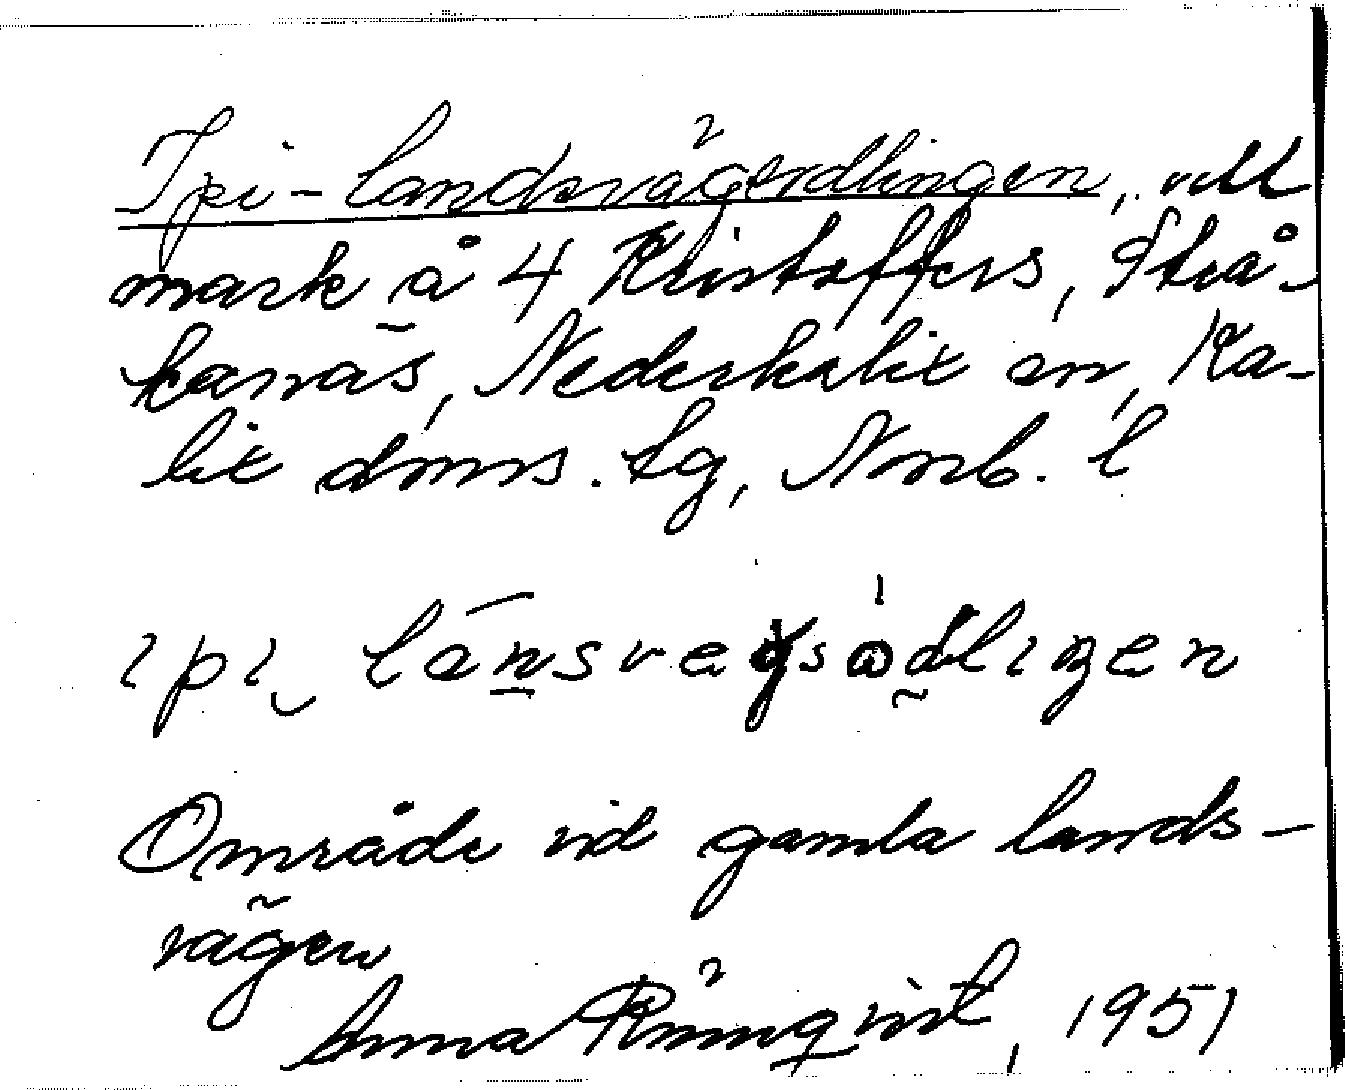 Ipi-landsvägerdlingen, odl
mark å 4 Kristoffers, Strå-
kanäs, Nederkalix sn, Ka-
lix doms. tg, Norrb. l
ipi lánsvegsødlingen
Område vid gamla lands-
vägen
Anna Rönnqvist, 1951